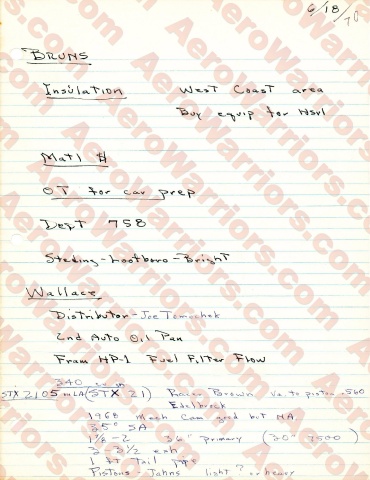 6/18/70
BRUNS
Insulation West Coast area
Buy equip for Hsrl
Matl #
OT for car prep
Dept 758
Steding-Lootboro-Bright
Wallace
Distributor-Joe Tomochek
2nd Auto Oil Pan
Fram HP-1 Fuel Filter Flow
340
STX 21) Racer Brown Va. to piston .560
Edelbrock
1968 Mech Cam good but NA
35° SA
1 7/8 - 2 36" Primary (20" 7500)
3 - 3 1/2 exh
1 ft tail pipe
Pistons - Jahns light? or heavy
AeroWarriors.com